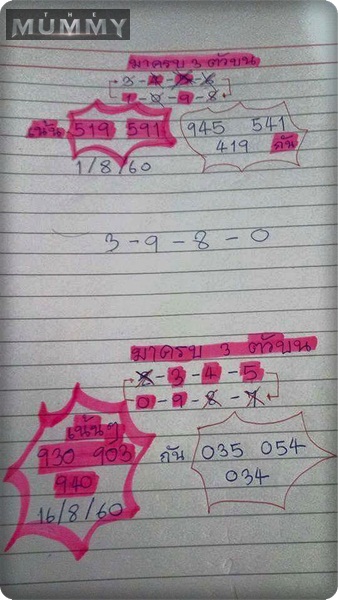 THE
MUMMY
มาครบ 3 ตัวบน
1-0-9-8
เน้น 519 591
945 541
419 กัน
1/8/60
3-9-8-0
มาครบ 3 ตัวบน
8-3-4-5
0-9-8-7
เน้นๆ
930 903
940
16/8/60
กัน 035 054
034